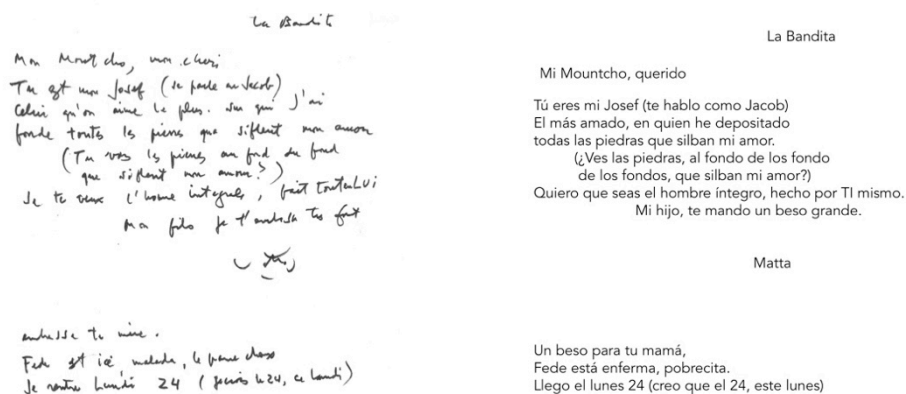 La Bandita
Mon Mountcho, mon cheri
Tu est mon Josef (je parle en Jacob)
Celui qu'on aime le plus. sur qui j'ai
fonde toutes les pierres que siflent mon amour
(Tu vois les pierres au fond du fond
que siflent mon amour?)
Je te veux l'home integrel, fait Toute Lui
Mon fils je t'embrasse tres fort
embrasse ta mère.
Fede est ici, malade, la pauvre
Je rentre Lundi 24 ( le 24, ce Lundi)
La Bandita
Mi Mountcho, querido
Tú eres mi Josef (te hablo como Jacob)
El más amado, en quien he depositado
todas las piedras que silban mi amor.
(¿Ves las piedras, al fondo de los fondo
de los fondos, que silban mi amor?)
Quiero que seas el hombre íntegro, hecho por TI mismo.
Mi hijo, te mando un beso grande.
Matta
Un beso para tu mamá,
Fede está enferma, pobrecita.
Llego el lunes 24 (creo que el 24, este lunes)